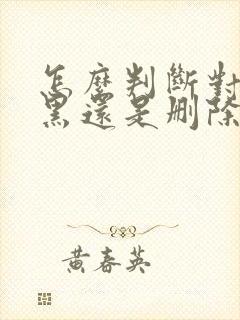 怎麼判斷對
黑還是刪除
黃春英